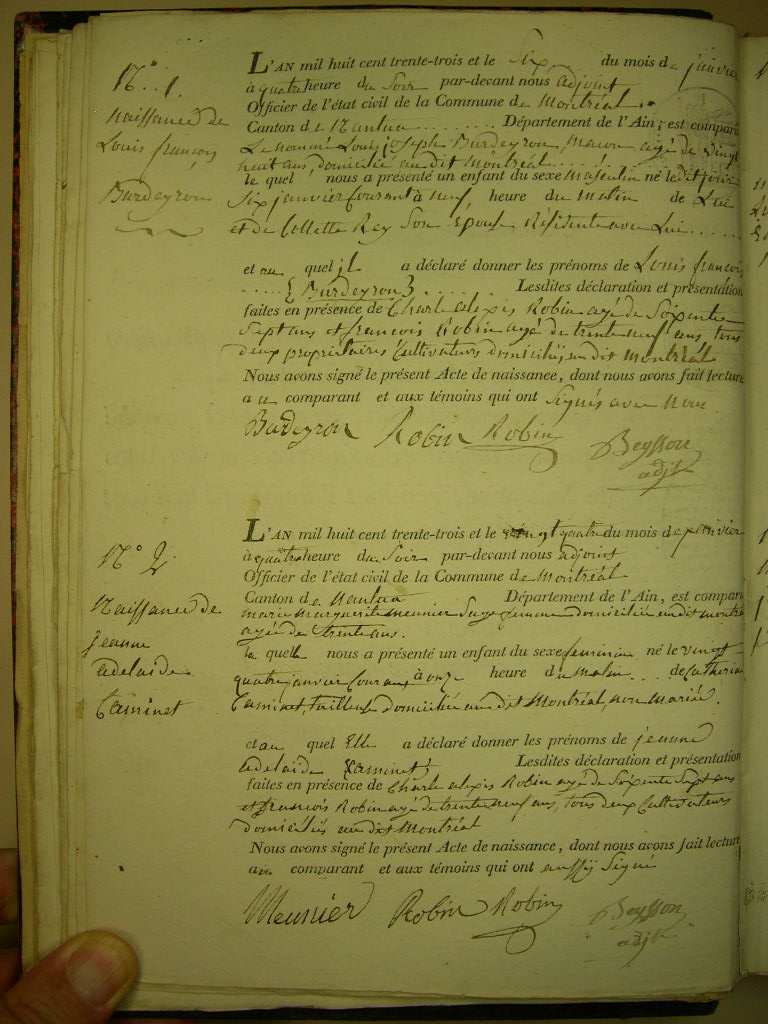 N° 1.
Naissance de
Louis françois
Burdeyron
L'AN mil huit cent trente-trois et le Six du mois de janvier
à quatre heure du Soir par-devant nous adjoint
Officier de l'état civil de la Commune de Montréal
Canton de Nantua Département de l'Ain, est comparu
Le nommé Louis joseph Burdeyron, Macon agé de vingt
huit ans, domicilié au dit Montréal
le quel nous a présenté un enfant du sexe Masculin né le dit jour
Six janvier Courant à neuf heure du Matin de Lui
et de Collette Rey Son Epouse Résidente avec Lui
et au quel il a déclaré donner les prénoms de Louis françois
{Burdeyron} Lesdites déclaration et présentation
faites en présence de Charle alexis Robin agé de Soixente
Sept ans et francois Robin agé de trente neuf ans, tous
deux propriétaires Cultivateurs domiciliés au dit Montréal
Nous avons signé le présent Acte de naissance, dont nous avons fait lecture
au comparant et aux témoins qui ont Signés avec Nous
Burdeyron Robin Robin Beysson
adjt
N° 2.
Naissance de
jeanne
adelaide
Caminet
L'AN mil huit cent trente-trois et le vingt quatre du mois de janvier
à quatre heure du Soir par-devant nous adjoint
Officier de l'état civil de la Commune de Montréal
Canton de Nantua Département de l'Ain, est comparu
marie Marguerite Meunier Sage femme domiciliée au dit Montréal
agée de trente ans.
la quelle nous a présenté un enfant du sexe feminin né le vingt
quatre janvier Courant à onze heure du Matin de Catherine
Caminet, tailleuse domiciliée au dit Montréal, non Mariée.
et au quel Elle a déclaré donner les prénoms de jeanne
adelaide {Caminet} Lesdites déclaration et présentation
faites en présence de Charle alexis Robin agé de Soixente Sept ans
et francois Robin agé de trente neuf ans, tous deux Cultivateurs
domiciliés au dit Montréal
Nous avons signé le présent Acte de naissance, dont nous avons fait lecture
au comparant et aux témoins qui ont aussy Signé
Meunier Robin Robin Beysson
adjt